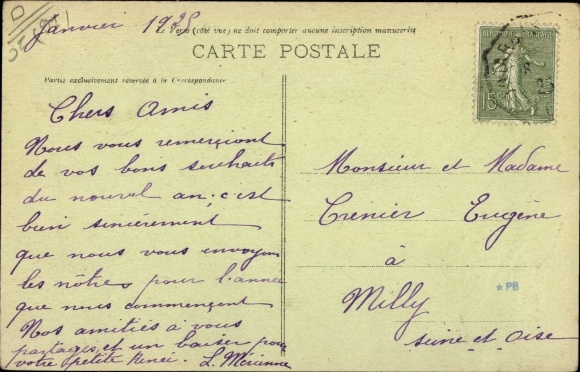 Janvier 1925
Le Verso (côté vue) ne doit comporter aucune inscription manuscrite
CARTE POSTALE
Partie exclusivement réservée à la Correspondance
REPUBLIQUE FRANÇAISE
15c
Chers Amis
Nous vous remerçiont
de vos bons souhaits
du nouvel an; c'est
bien sincèrement
que nous vous envoyons
les nôtres pour l'année
que nous commençont
Nos amitiés à vous
partager, et un baiser pour
votre petite Renée.
Monsieur et Madame
Crenier Eugène
à
Milly
Seine et Oise
PB